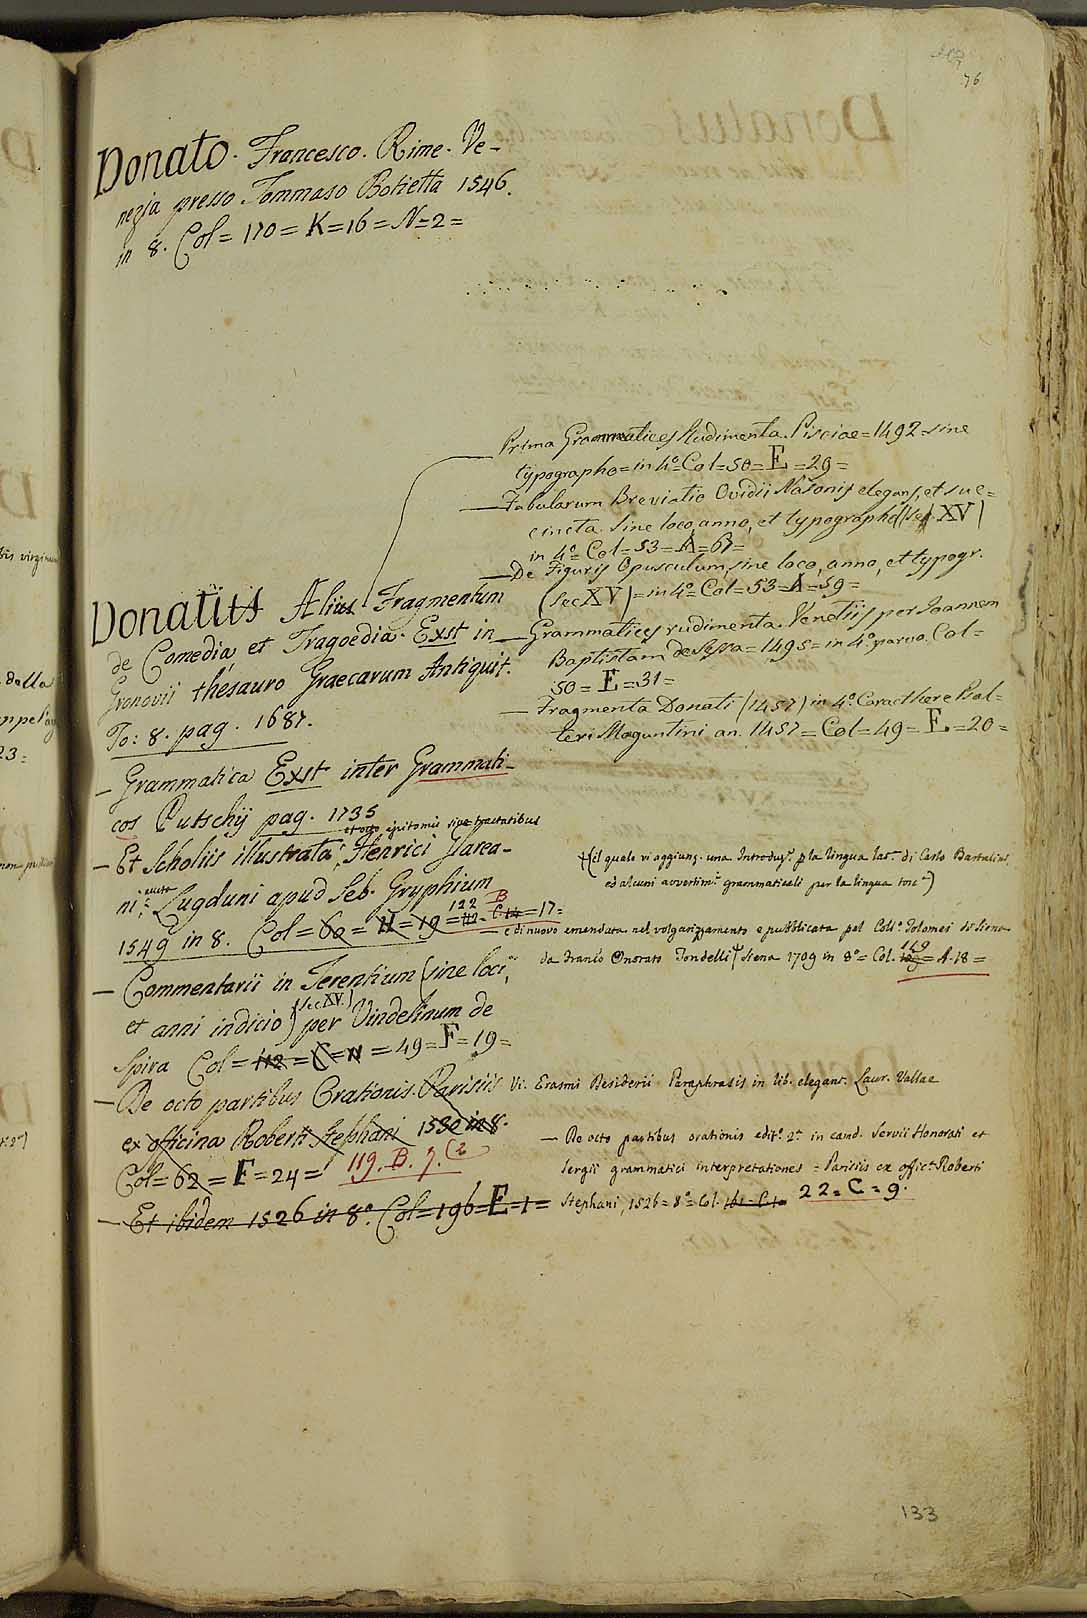 76
Donato. Francesco. Rime. Ve-
nezia presso Tommaso Botietta 1546.
in 8. Col = 170 = K = 16 = N = 2 =
Prima Grammatices Rudimenta. Pisciae = 1492 = sine
typographo = in 4.º Col = 50 = E = 29 =
— Fabularum Breviatio Ovidii Nasonis elegans, et suc=
cincta. Sine loco, anno, et typographo (Sec. XV)
in 4.º Col = 53 = A = 67 =
— De Figuris Opusculum, sine loco, anno, et typogr.
(sec XV) = in 4.º Col = 53 = A = 59 =
— Grammatices rudimenta. Venetiis per Joannem
Baptistam de Sessa = 1495 = in 4.º parvo. Col =
50 = E = 31 =
— Fragmenta Donati (1457) in 4.º Caracthere Psal-
terii Maguntini an. 1457 = Col = 49 = E = 20 =
Donatus Alius Fragmentum
de Comedia, et Tragoedia. Exst in
Gronovii thesauro Graecarum Antiquit.
To: 8. pag. 1687.
— Grammatica Exst inter Grammati-
cos Putschij pag. 1735
et octo epitomis sive tractatibus
— Et Scholiis illustrata, Henrici Glarea-
ni: aucta Lugduni apud Seb. Gryphium
1549 in 8. Col = 60 = H = 19 = 112 = C 14 = 17 =
122 B
(il quale vi aggiung. una Introduz.e p la lingua lat.a di Carlo Bartalini
ed alcuni avvertim.ti grammaticali per la lingua tosc.a)
— e di nuovo emendata nel volgarizzamento e pubblicata pel Coll.o Tolomei di Siena
da Dranio Onorato Tondelli Siena 1709 in 8º = Col. 149 = A. 18 =
— Commentarii in Terentium (sine loci,
et anni indicio) (sec. XV.) per Vindelinum de
Spira Col = 112 = C = 11 = 49 = F = 19 =
— De octo partibus Orationis. Parisiis
ex officina Roberti Stephani 1530 in 8.
Col = 62 = F = 24 = 119. B. 7. (2
— Et ibidem 1526 in 8º. Col = 196 = E = 1 =
Vi. Erasmi Desiderii Paraphrasis in lib. elegant. Laur. Vallae
— De octo partibus orationis edit.o 2.a in eamd. Servii Honorati et
Sergii grammatici interpretationes = Parisiis ex offic.a Roberti
Stephani, 1526 = 8º = Col. 161 = C 1 = 22 = C = 9.
133